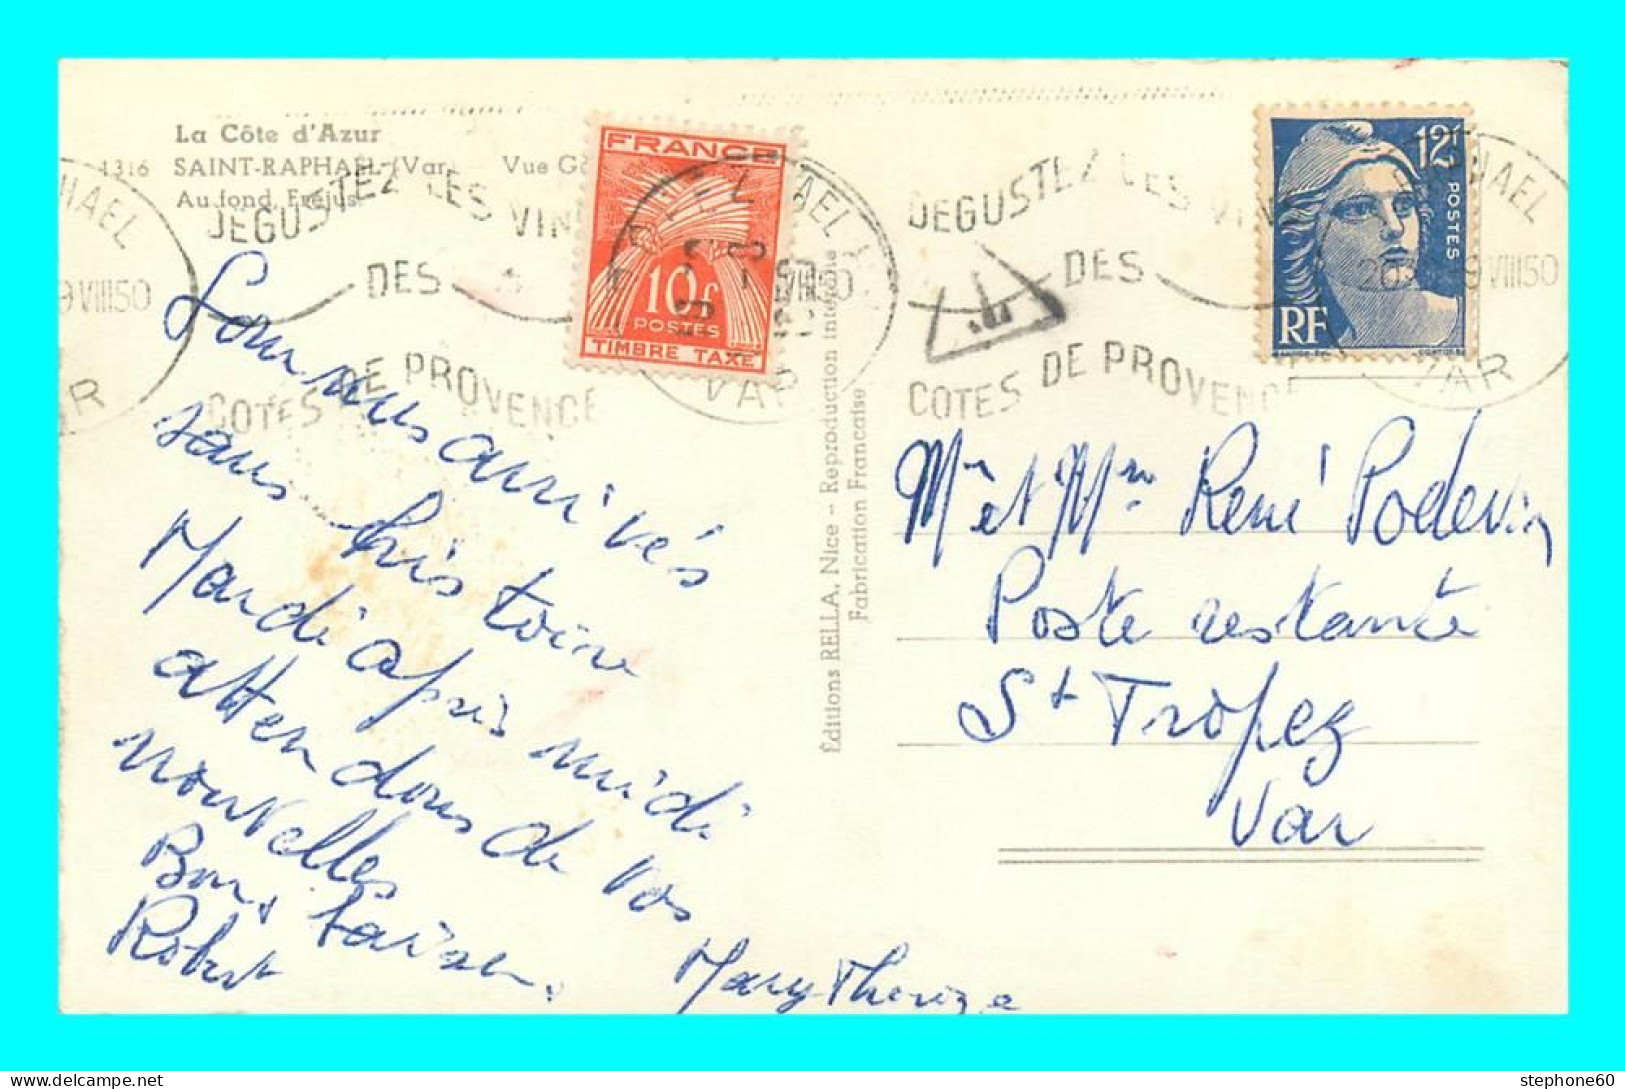 La Côte d'Azur
4316 SAINT-RAPHAËL (Var)
Vue Gé
Au fond, Fréjus
DEGUSTEZ LES VINS
DES
COTES DE PROVENCE
FRANCE
10f
POSTES
TIMBRE TAXE
VAR
DEGUSTEZ LES VINS
DES
COTES DE PROVENCE
12f
POSTES
RF
RAPHAEL
9 VIII 50
VAR
Sommes arrivés
sans histoire
Mardi après midi
attendons de vos
nouvelles
Bons baisers.
Robert
Mary-Thérèze
Éditions RELLA, Nice - Reproduction interdite
Fabrication Francaise
Mr et Mme René Podevin
Poste restante
St Tropez
Var
stephone60